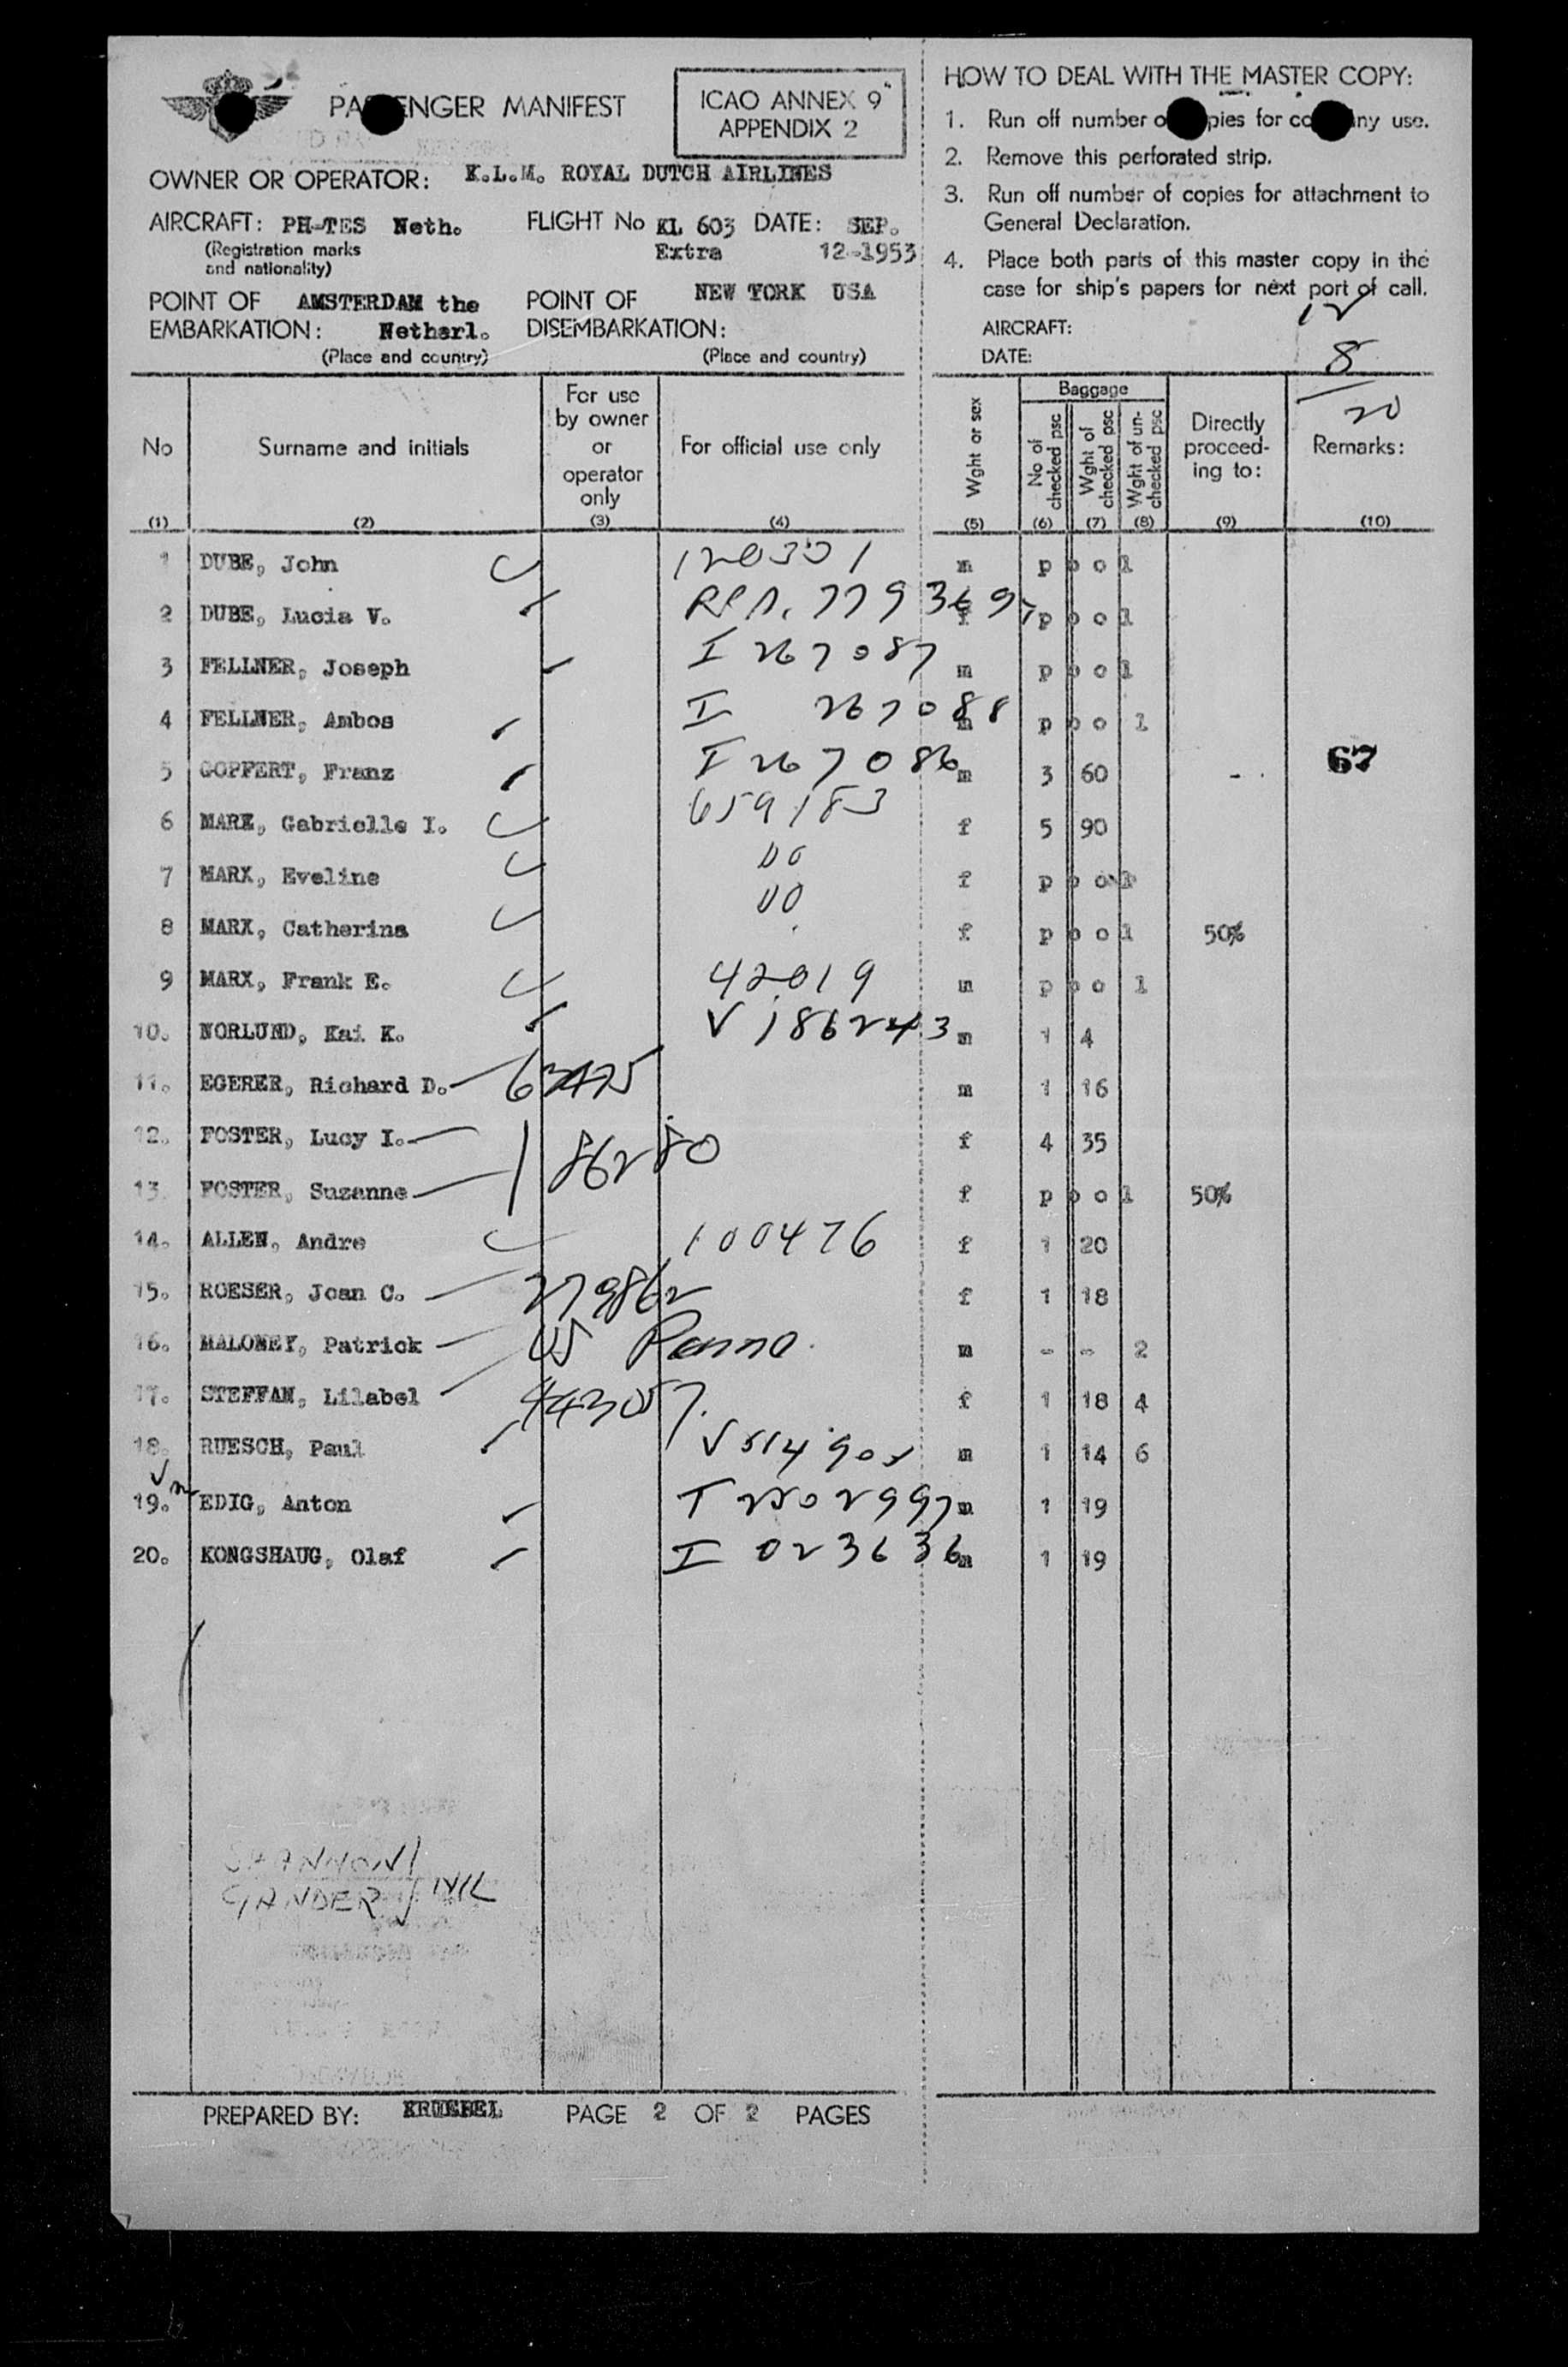 PASSENGER MANIFEST
ICAO ANNEX 9
APPENDIX 2
OWNER OR OPERATOR: K.L.M. ROYAL DUTCH AIRLINES
AIRCRAFT: PH-TES Neth. FLIGHT No KL 603 DATE: SEP.
(Registration marks Extra 12-1953
and nationality)
POINT OF AMSTERDAM the POINT OF NEW YORK USA
EMBARKATION: Netherl. DISEMBARKATION:
(Place and country) (Place and country)
HOW TO DEAL WITH THE MASTER COPY:
1. Run off number of copies for company use.
2. Remove this perforated strip.
3. Run off number of copies for attachment to
General Declaration.
4. Place both parts of this master copy in the
case for ship's papers for next port of call.
AIRCRAFT: 12
DATE: 8
20
No Surname and initials For use by owner or operator only For official use only Wght or sex Baggage No of checked psc Wght of checked psc Wght of un-checked psc Directly proceed-ing to: Remarks:
(1) (2) (3) (4) (5) (6) (7) (8) (9) (10)
1 DUBE, John 120301 m p o o l
2 DUBE, Lucia V. 7793695 f p o o l
3 FELLNER, Joseph I 267087 m p o o l
4 FELLNER, Ambos I 267088 m p o o l
5 GOPFERT, Franz I 267086 m 3 60 - 67
6 MARX, Gabrielle I. 659183 f 5 90
7 MARX, Eveline DO f p o o l
8 MARX, Catherina DO f p o o l 50%
9 MARX, Frank E. 42019 m p o o l
10. NORLUND, Kai K. V 1862243 m 1 4
11. EGERER, Richard D. 63475 m 1 16
12. FOSTER, Lucy I. 186280 f 4 35
13. FOSTER, Suzanne f p o o l 50%
14. ALLEN, Andre 100476 f 1 20
15. ROESER, Joan C. 279862 f 1 18
16. MALONEY, Patrick US m - - 2
17. STEFFAN, Lilabel 443057 f 1 18 4
18. RUESCH, Paul V 514905 m 1 14 6
19. EDIG, Anton m 1 19
20. KONGSHAUG, Olaf I 023636 m 1 19
SHANNON
GANDER / NIL
PREPARED BY: KRUEBEL PAGE 2 OF 2 PAGES